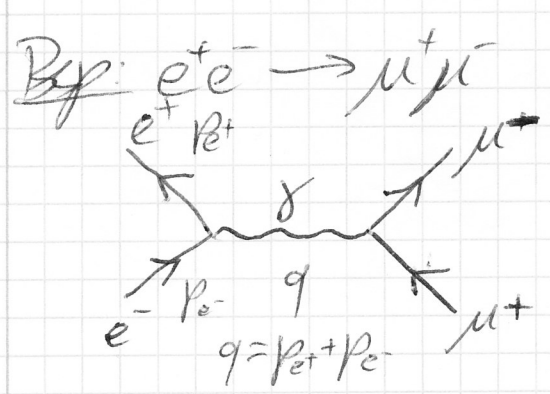 Bsp: e⁺e⁻ → μ⁺μ⁻
e⁺ p_e⁺ μ⁻
γ
q
e⁻ p_e⁻ μ⁺
q = p_e⁺ + p_e⁻